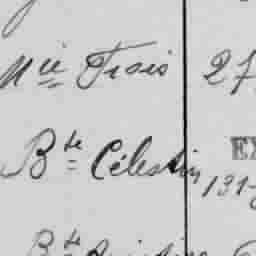 Mie Frois 27
Bte Célestin EX
131-
Bte